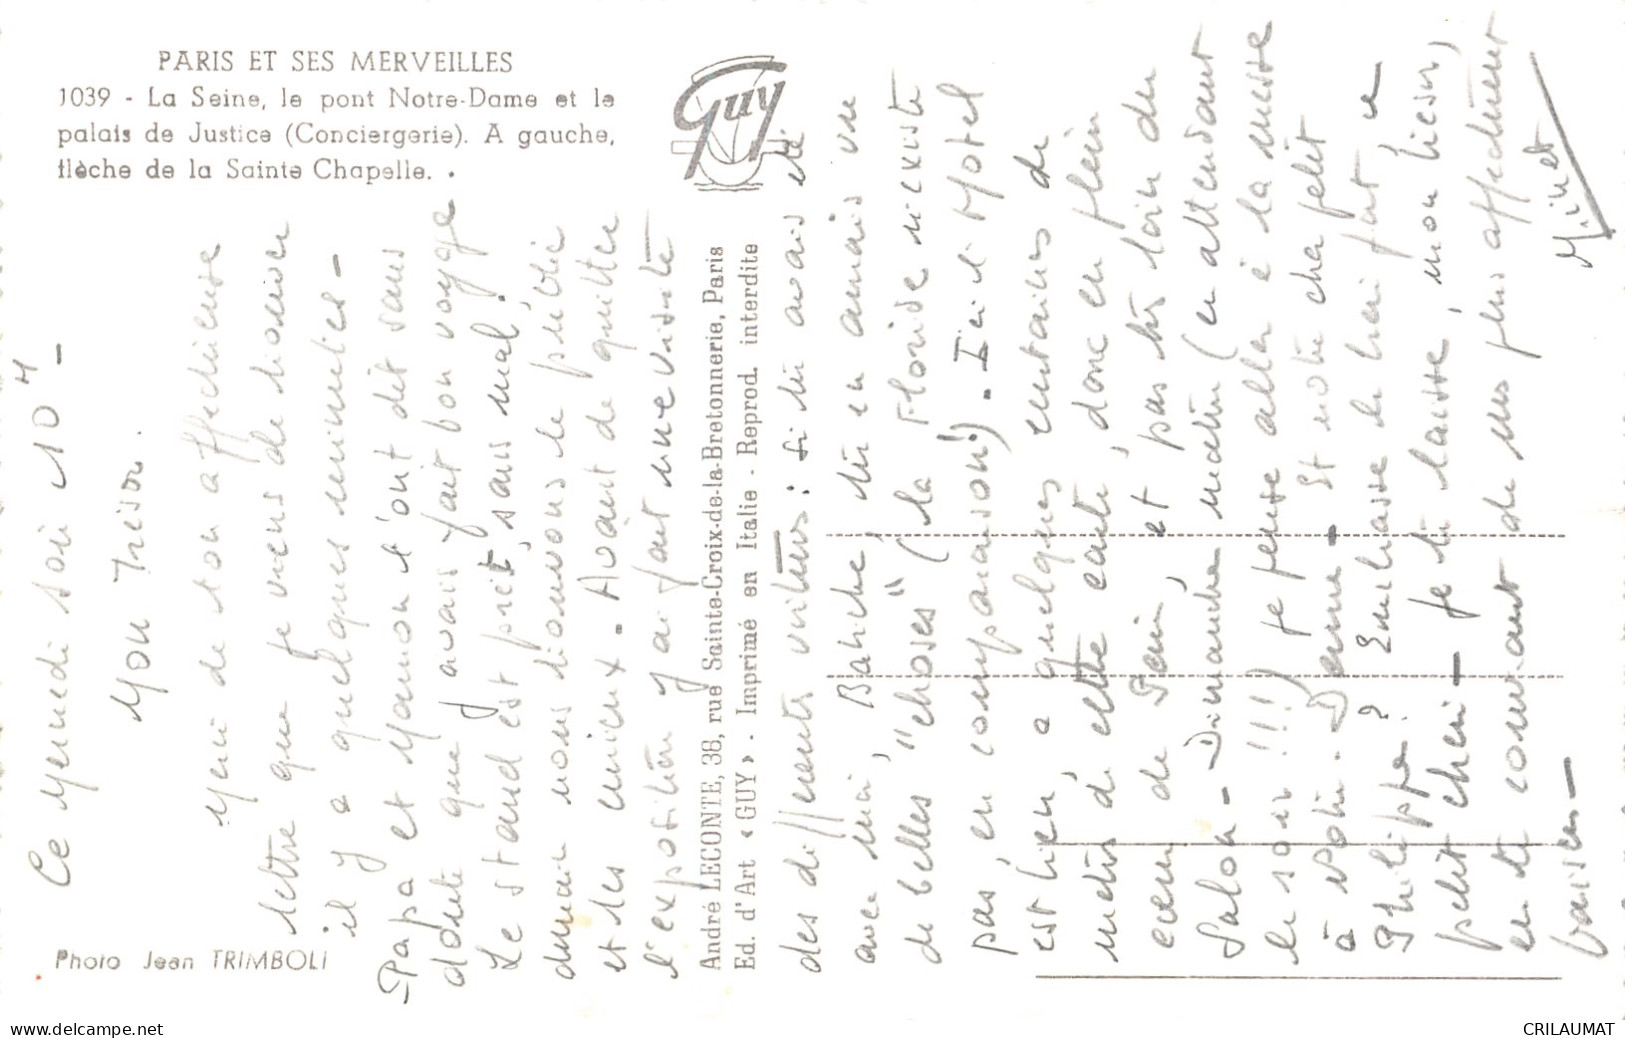 PARIS ET SES MERVEILLES
1039 - La Seine, le pont Notre-Dame et le
palais de Justice (Conciergerie). A gauche,
flèche de la Sainte Chapelle.
Guy
Photo Jean TRIMBOLI
André LECONTE, 38, rue Sainte-Croix-de-la-Bretonnerie, Paris
Ed. d'Art « GUY » - Imprimé en Italie - Reprod. interdite
Ce soir 10 H -
Mon Trésor.
Merci de ton affectueuse
lettre que je viens de trouver
il y a quelques minutes -
Papa et Maman t'ont dit sans
doute que j'avais fait bon voyage
Le stand est prêt, sans mal!
demain nous donnons le
et les - Avant de quitter
l'exposition j'ai fait une visite
des différents : si tu avais été
avec moi, tu en aurais vu
de belles "choses" (la Floride n'existe
pas, en comparaison!). Ici l'Hotel
est bien, à quelques centaines de
mètres de cette carte, donc en plein
cœur de Paris, et pas très loin du
Salon - Dimanche matin (en attendant
le soir !!!) je pense aller à la messe
à Notre-Dame - Et notre chapelet
Philippe? Embrasse le bien fort ce
petit chéri - Je te laisse, mon trésor,
en te couvrant de mes plus affectueux
baisers -
Minet
delcampe.net
CRILAUMAT